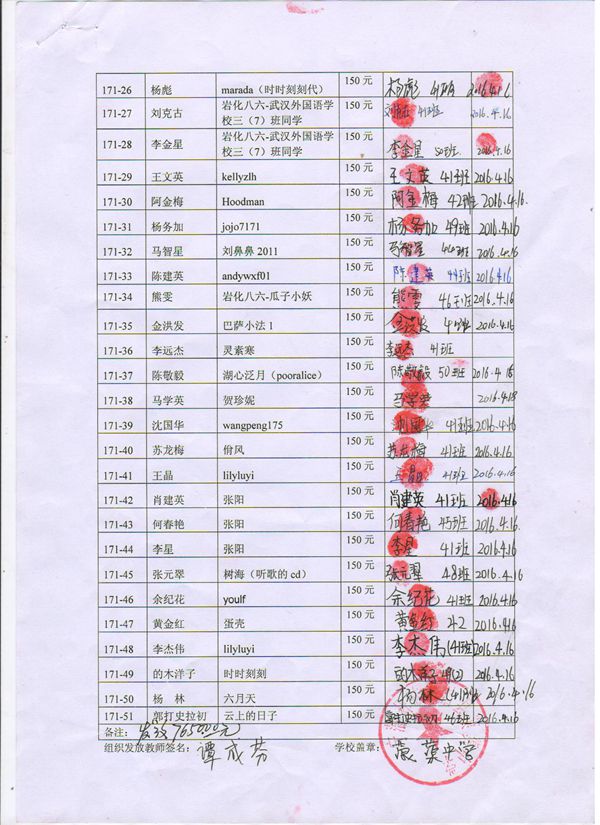 171-26 杨彪 marada（时时刻刻代） 150 元 杨彪 41班 2016.4.16
171-27 刘克古 岩化八六-武汉外国语学 150 元 41班 2016.4.16
校三（7）班同学
171-28 李金星 岩化八六-武汉外国语学 150 元 李金星 50班 4.16
校三（7）班同学
171-29 王文英 kellyzlh 150 元 王文英 41班 2016.4.16
171-30 阿金梅 Hoodman 150 元 阿金梅 42班 2016.4.16.
171-31 杨务加 jojo7171 150 元 杨务加 49班 2016.4.16
171-32 马智星 刘鼻鼻 2011 150 元 马智星 2016.4.16
171-33 陈建英 andywxf01 150 元 陈建英 44班 2016.4.16
171-34 熊雯 岩化八六-瓜子小妖 150 元 熊雯 46班 2016.4.16
171-35 金洪发 巴萨小法 1 150 元 2016.4.16
171-36 李远杰 灵素寒 150 元 李远杰 41班
171-37 陈敬毅 湖心泛月（pooralice） 150 元 陈敬毅 50班 2016.4.16
171-38 马学英 贺珍妮 150 元 马学英 2016.4.18
171-39 沈国华 wangpeng175 150 元 41班 2016.4.16
171-40 苏龙梅 佾风 150 元 苏龙梅 41班 2016.4.16
171-41 王晶 lilyluyi 150 元 王晶 41班 2016.4.16
171-42 肖建英 张阳 150 元 肖建英 41班 2016.4.16
171-43 何春艳 张阳 150 元 何春艳 45班 2016.4.16
171-44 李星 张阳 150 元 李星 41班 2016.4.16
171-45 张元翠 树海（听歌的 cd） 150 元 张元翠 48班 2016.4.16
171-46 余纪花 youlf 150 元 余纪花 41班 2016.4.16
171-47 黄金红 蛋壳 150 元 黄金红 2016.4.16
171-48 李杰伟 lilyluyi 150 元 李杰伟 (41班) 2016.4.16
171-49 的木洋子 时时刻刻 150 元 2016.4.16
171-50 杨 林 六月天 150 元 杨林 (41)班 2016.4.16
171-51 郎打史拉初 云上的日子 150 元 46班 2016.4.16
备注：发放7650.00元
组织发放教师签名：谭成芬 学校盖章： 中学